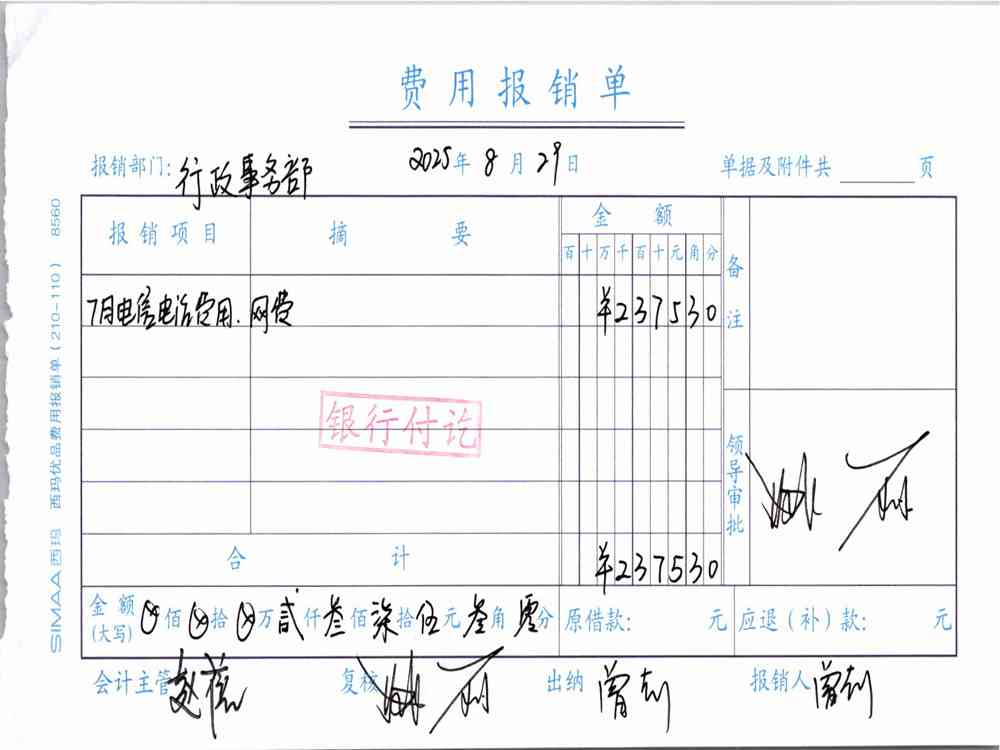 费用报销单
报销部门: 行政事务部 2025年 8月 29日 单据及附件共 页
报销项目 摘要 金额 备注
百 十 万 千 百 十 元 角 分
7月电信电话费用. 网费 ¥237530
银行付讫
领导审批
合计 ¥237530
金额(大写) ⊗佰⊗拾⊗万贰仟叁佰柒拾伍元叁角零分 原借款: 元 应退(补)款: 元
会计主管 复核 出纳 报销人
SIMAA西玛 西玛优品费用报销单(210-110) 8560